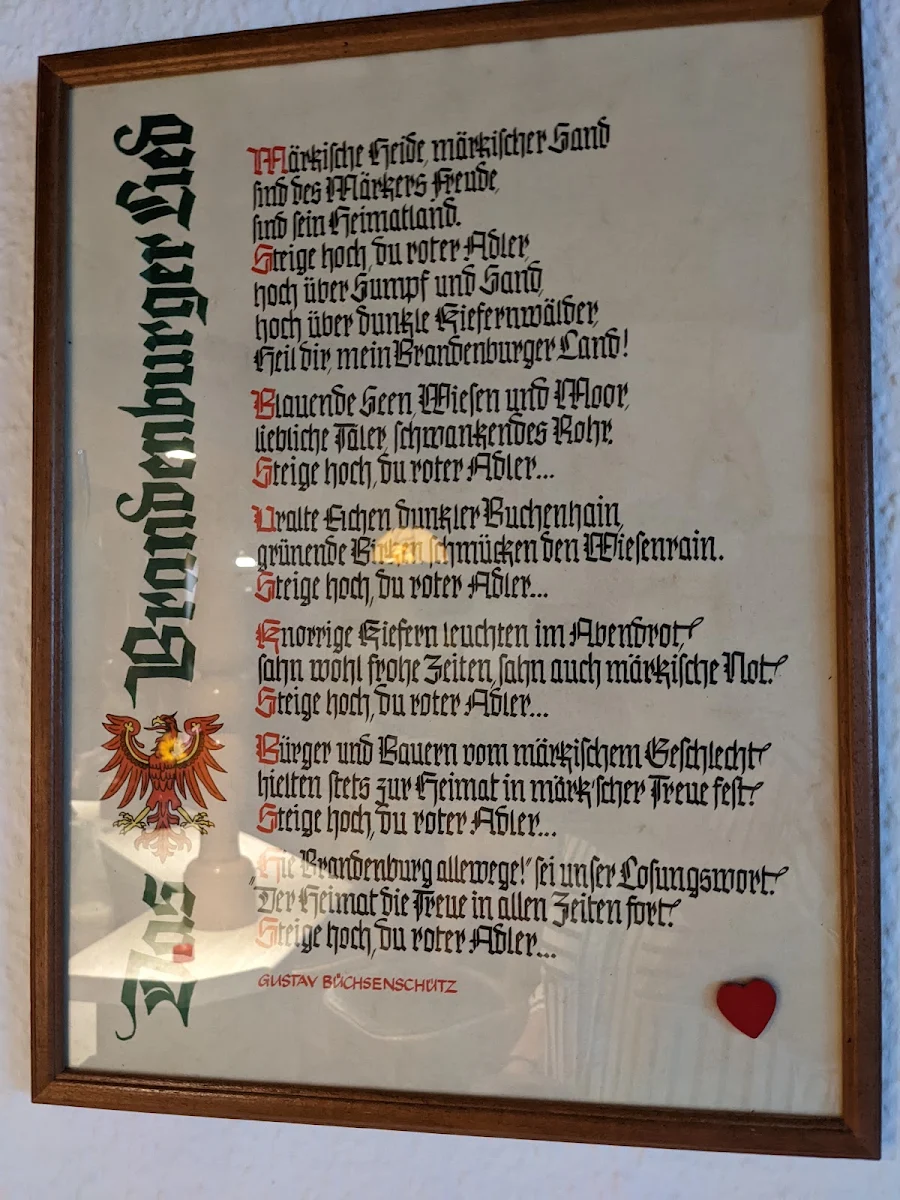 Das Brandenburger Lied
Märkische Heide, märkischer Sand
sind des Märkers Freude,
sind sein Heimatland.
Steige hoch, du roter Adler,
hoch über Sumpf und Sand,
hoch über dunkle Kiefernwälder,
Heil dir, mein Brandenburger Land!
Blauende Seen, Wiesen und Moor,
liebliche Täler, schwankendes Rohr.
Steige hoch, du roter Adler...
Uralte Eichen dunkler Buchenhain,
grünende Birken schmücken den Wiesenrain.
Steige hoch, du roter Adler...
Knorrige Kiefern leuchten im Abendrot,
sahn wohl frohe Zeiten, sahn auch märkische Not.
Steige hoch, du roter Adler...
Bürger und Bauern vom märkischem Geschlecht
hielten stets zur Heimat in märk'scher Treue fest.
Steige hoch, du roter Adler...
„Hie Brandenburg allewege!" sei unser Losungswort.
Der Heimat die Treue in allen Zeiten fort.
Steige hoch, du roter Adler...
GUSTAV BÜCHSENSCHÜTZ